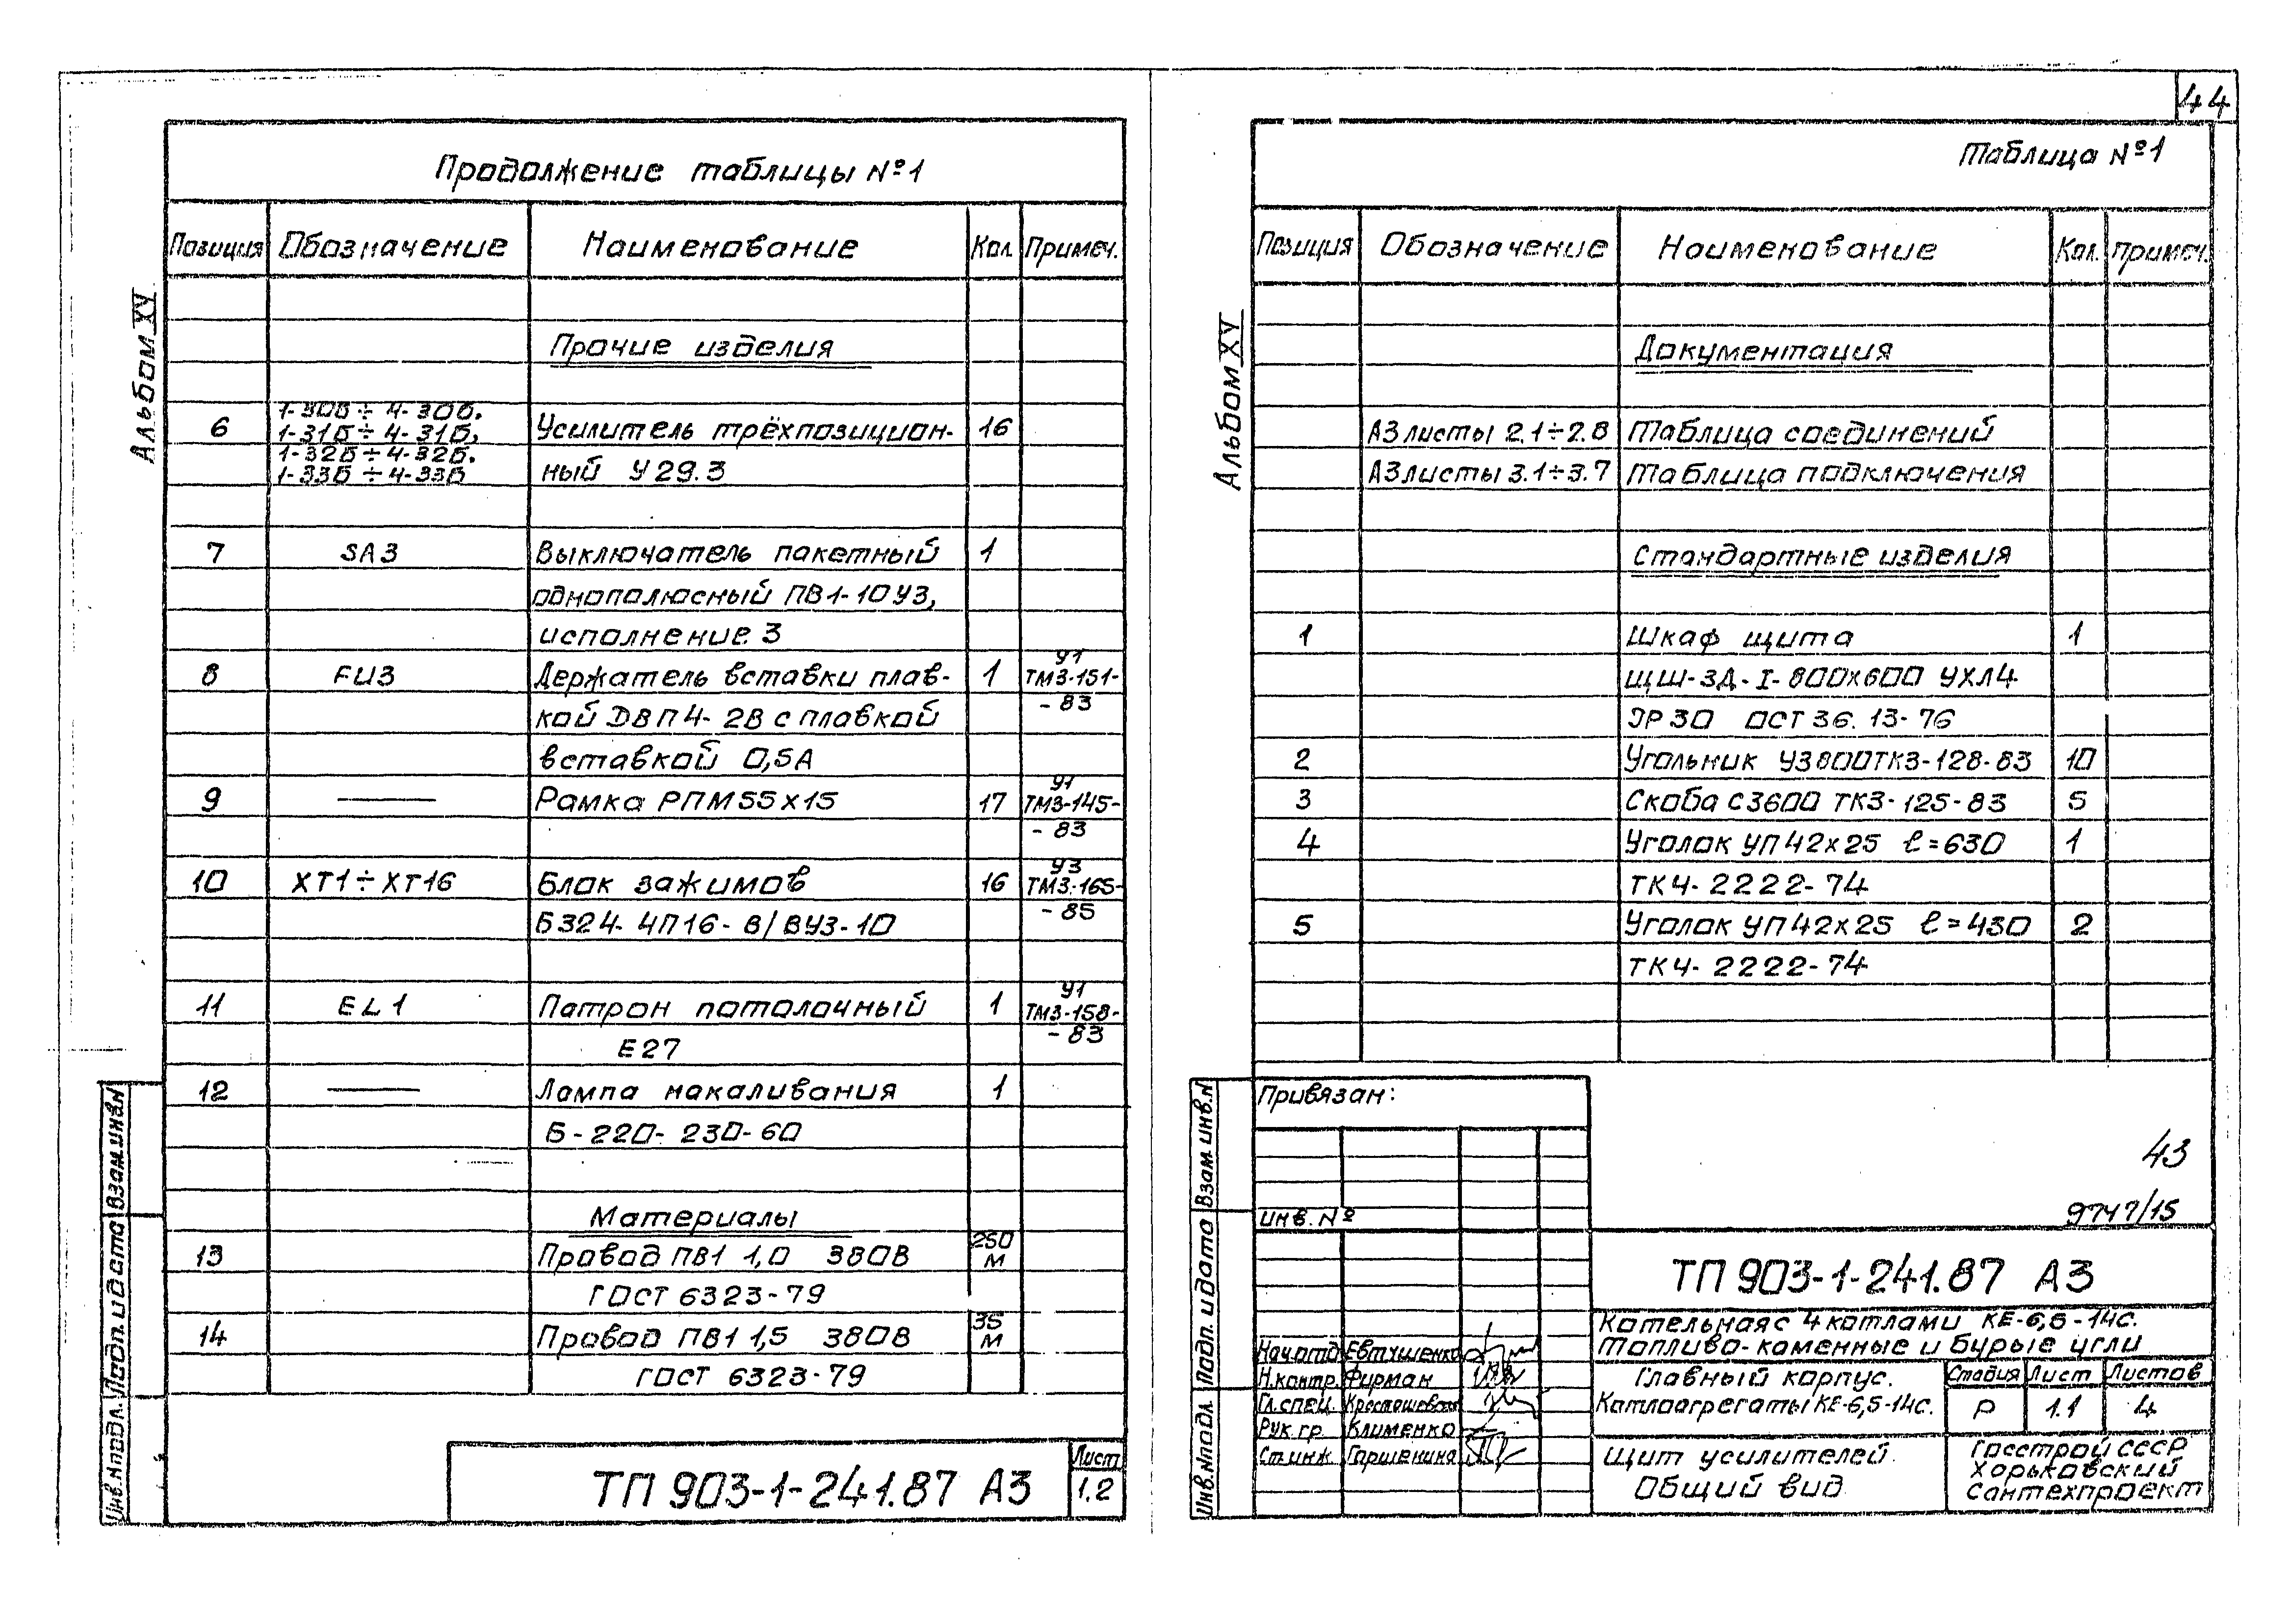 44
Альбом XV
Продолжение таблицы №1
Позиция Обозначение Наименование Кол. Примеч.
Прочие изделия
1-30б÷4-30б.
6 1-31б÷4-31б. Усилитель трёхпозицион- 16
1-32б÷4-32б.
1-33б÷4-33б ный У29.3
7 SA3 Выключатель пакетный 1
однополюсный ПВ1-10У3,
исполнение 3
8 FU3 Держатель вставки плав- 1 У1 ТМ3-151-
кой ДВП4-2В с плавкой -83
вставкой 0,5А
9 — Рамка РПМ 55х15 17 У1 ТМ3-145-
-83
10 ХТ1÷ХТ16 Блок зажимов 16 У3 ТМ3-165-
Б324-4П16-В/ВУ3-10 -85
11 EL1 Патрон потолочный 1 У1 ТМ3-158-
Е27 -83
12 — Лампа накаливания 1
Б-220-230-60
Материалы
13 Провод ПВ1 1,0 380В 250 м
ГОСТ 6323-79
14 Провод ПВ1 1,5 380В 35 м
ГОСТ 6323-79
Инв.№подл. Подп. и дата Взам.инв.№
ТП 903-1-241.87 А3
Лист
1.2
Альбом XV
Таблица №1
Позиция Обозначение Наименование Кол. Примеч.
Документация
А3 листы 2.1÷2.8 Таблица соединений
А3 листы 3.1÷3.7 Таблица подключения
Стандартные изделия
1 Шкаф щита 1
ЩШ-ЗД-I-800х600 УХЛ4
IР30 ОСТ 36.13-76
2 Угольник У3800ТК3-128-83 10
3 Скоба С3600 ТК3-125-83 5
4 Уголок УП 42х25 ℓ=630 1
ТК4-2222-74
5 Уголок УП 42х25 ℓ=430 2
ТК4-2222-74
Инв.№подл. Подп. и дата Взам.инв.№
Привязан:
Инв.№
43
9747/15
ТП 903-1-241.87 А3
Котельная с 4 котлами КЕ-6,5-14с.
Топливо-каменные и бурые угли
Нач.отд Евтушенко
Н.контр. Фирман
Гл.спец.
Рук.гр. Клименко
Ст.инж. Гаршенина
Главный корпус.
Котлоагрегаты КЕ-6,5-14с.
Стадия Лист Листов
Р 1.1 4
Щит усилителей.
Общий вид.
Госстрой СССР
Харьковский
Сантехпроект